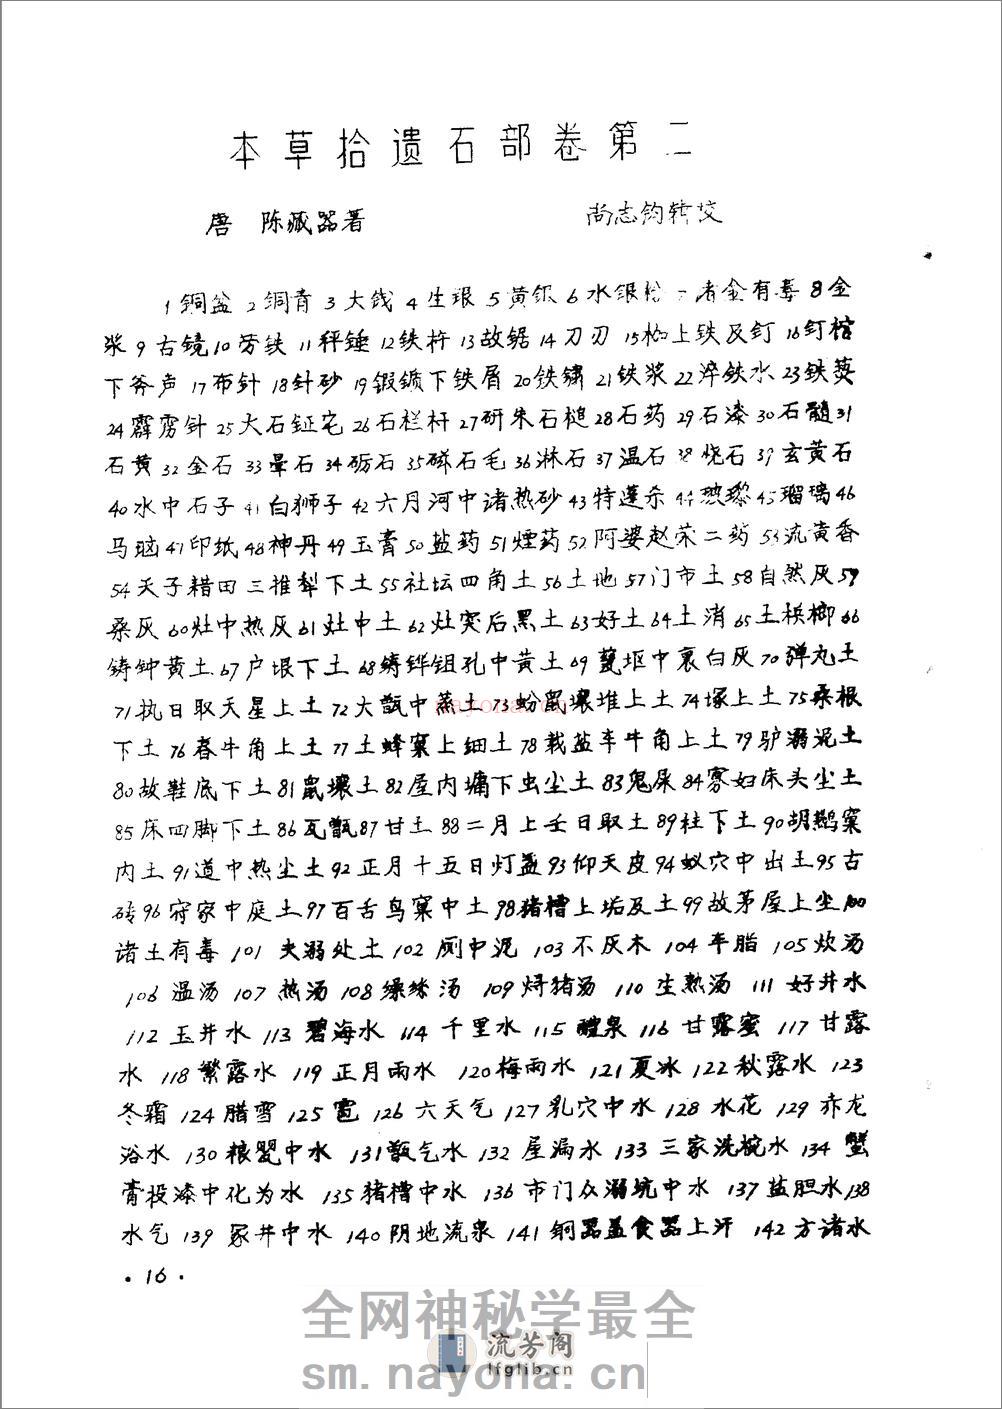 本草拾遗石部卷第二
唐 陈藏器著 尚志钧辑校
1铜盆 2铜青 3大钱 4生银 5黄银 6水银粉 7诸金有毒 8金
浆 9古镜 10劳铁 11秤锤 12铁杵 13故锯 14刀刃 15枷上铁及钉 16钉棺
下斧声 17布针 18针砂 19锻锧下铁屑 20铁锈 21铁浆 22淬铁水 23铁爇
24霹雳针 25大石镇宅 26石栏杆 27研朱石槌 28石药 29石漆 30石髓 31
石黄 32金石 33晕石 34砺石 35磁石毛 36淋石 37温石 38烧石 39玄黄石
40水中石子 41白狮子 42六月河中诸热砂 43特蓬杀 44玻璃 45瑠璃 46
马瑙 47印纸 48神丹 49玉膏 50盐药 51烟药 52阿婆赵荣二药 53流黄香
54天子耤田三推犁下土 55社坛四角土 56土地 57门市土 58自然灰 59
桑灰 60灶中热灰 61灶中土 62灶突后黑土 63好土 64土消 65土槟榔 66
铸钟黄土 67户垠下土 68铸铧钼孔中黄土 69瓷坯中裏白灰 70弹丸土
71执日取天星上土 72大甑中蒸土 73蚡鼠壤堆上土 74塚上土 75桑根
下土 76春牛角上土 77土蜂窠上细土 78载盐车牛角上土 79驴溺泥土
80故鞋底下土 81鼠壤土 82屋内墉下虫尘土 83鬼屎 84寡妇床头尘土
85床四脚下土 86瓦甑 87甘土 88二月上壬日取土 89柱下土 90胡鷰窠
内土 91道中热尘土 92正月十五日灯盏 93仰天皮 94蚁穴中出土 95古
砖 96富家中庭土 97百舌鸟窠中土 98猪槽上垢及土 99故茅屋上尘 100
诸土有毒 101 犬溺处土 102 厕中泥 103 不灰木 104 车脂 105 炊汤
106 温汤 107 热汤 108 缲丝汤 109 燖猪汤 110 生熟汤 111 好井水
112 玉井水 113 碧海水 114 千里水 115 醴泉 116 甘露蜜 117 甘露
水 118 繁露水 119 正月雨水 120 梅雨水 121 夏冰 122 秋露水 123
冬霜 124 腊雪 125 雹 126 六天气 127 乳穴中水 128 水花 129 赤龙
浴水 130 粮罂中水 131 甑气水 132 屋漏水 133 三家洗椀水 134 蟹
膏投漆中化为水 135 猪槽中水 136 市门众溺坑中水 137 盐胆水 138
水气 139 冢井中水 140 阴地流泉 141 铜器盖食器上汗 142 方诸水
·16·
全网神秘学最全
流芳阁
lfglib.cn
sm.nayona.cn